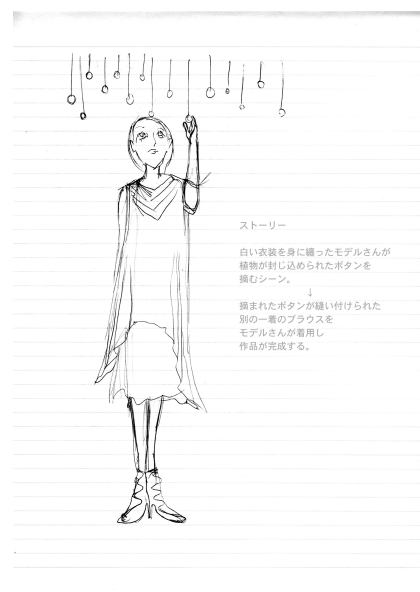 ストーリー
白い衣装を身に纏ったモデルさんが
植物が封じ込められたボタンを
摘むシーン。
↓
摘まれたボタンが縫い付けられた
別の一着のブラウスを
モデルさんが着用し
作品が完成する。